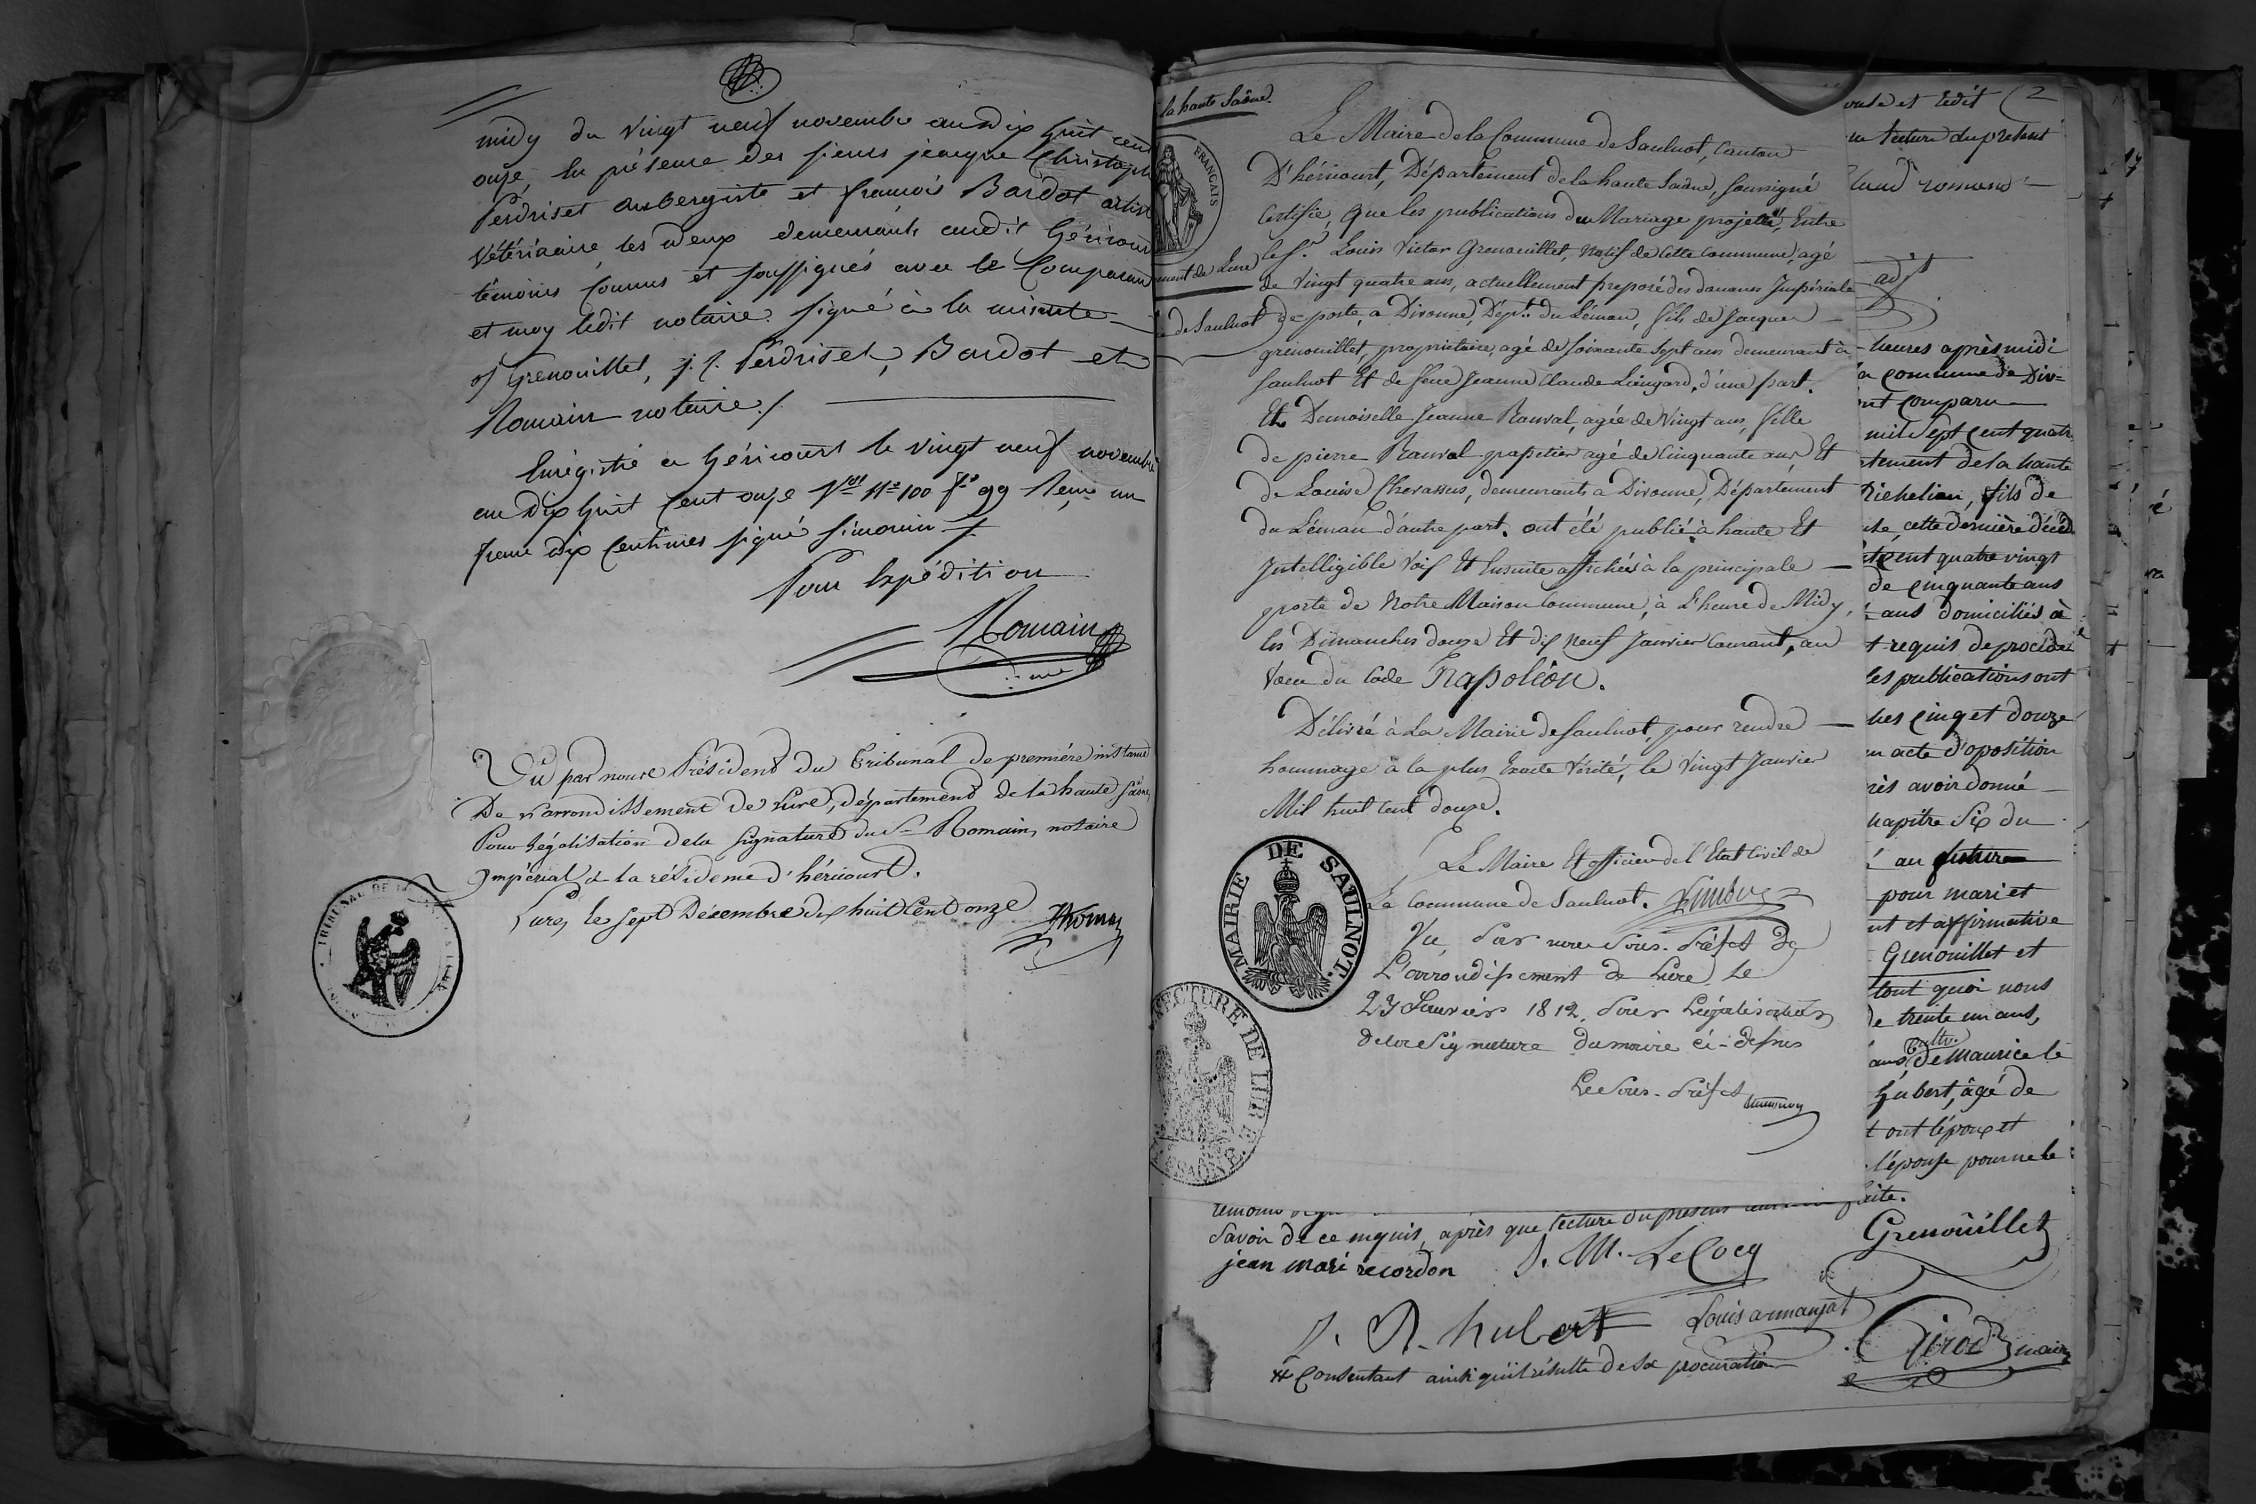 midy du vingt neuf novembre an dix huit cent
onze, en présence des sieurs jacque Christophe
Perdriset aubergiste et françois Bardot artiste
vétérinaire, les deux demeurants audit héricourt
témoins connus et soussignés avec le Comparant
et moy ledit notaire. signé à la minute
j. grenouillet, j. c. Perdriset, Bardot et
Romain notaire./.
Enregistré a héricourt le vingt neuf novembre
an dix huit cent onze Vol 11e 100 fo 99 Reçu un
franc dix centimes signé simonin
Pour Expédition
Romain
Vu par nous Président du Tribunal de première instance
De l'arrondissement de Lure, département de la haute saône,
Pour légalisation de la signature du Sr Romain, notaire
impérial à la résidence d'héricourt.
Lure, le sept Décembre dix huit Cent onze
Thomas
TRIBUNAL DE
la haute Saône.
FRANÇAIS
ment de Lure
de Saulnot
Le Maire de la Commune de Saulnot, Canton
D'héricourt, Département de la haute Saône, soussigné
Certifie, que les publications du Mariage projetté, Entre
le sr. Louis Victor Grenouillet, Natif de Cette Commune, agé
de Vingt quatre ans, actuellement preposé des douanes Impériale
de poste, a Divonne, Dépt. du Léman, fils de Jacques
grenouillet, propriétaire, agé de soixante Sept ans demeurant à
Saulnot Et de feue Jeanne Claude Liengard, d'une part.
Et Demoiselle Jeanne Rauval, agée de Vingt ans, fille
de pierre Rauval papetier agé de Cinquante ans, Et
de Louise Chevassus, demeurants a Divonne, Département
du Léman d'autre part. ont été publiés à haute Et
Intelligible Voix Et Ensuite affichées à la principale
porte de Notre Maison Commune, à L'heure de Midy,
les Dimanches douze Et dix Neuf Janvier Courant, au
Vœu du Code Napoléon.
Délivré à La Mairie de Saulnot, pour rendre
hommage à la plus Exacte Vérité, le Vingt Janvier
Mil huit Cent douze.
Le Maire Et officier de l'Etat Civil de
La Commune de Saulnot.
MAIRIE DE SAULNOT.
Vu Par nous Sous-Préfet de
L'arrondissement de Lure Le
23 Janvier 1812. Pour Légalisation
de la Signature du maire ci-dessus
Le Sous-Préfet
PRÉFECTURE DE LURE
2
ouse et ledit
lecture du présent
adjt
heures après midi
la commune de Div=
ont comparu
mil Sept Cent quatre
rtement de la haute
Richelieu, fils de
cette dernière décéd
cent quatre vingt
de cinquante ans
ans domiciliés à
t requis de procéder
les publications ont
hes cinq et douze
un acte d'oposition
rès avoir donné
hapitre Six du
au futur
pour mari et
nt et affirmative
Grenouillet et
tout quoi nous
de trente un ans,
ans, de Maurice le
hubert, âgé de
t ont l'époux et
l'épouse pour ne le
faite.
savoir de ce enquis, après que lecture du présent
jean mari recordon J. M. Le Cocq Grenouillet
J. N. hubert Louis armanjat Girod maire
# Consentant ainsi qu'il résulte de Sa procuration